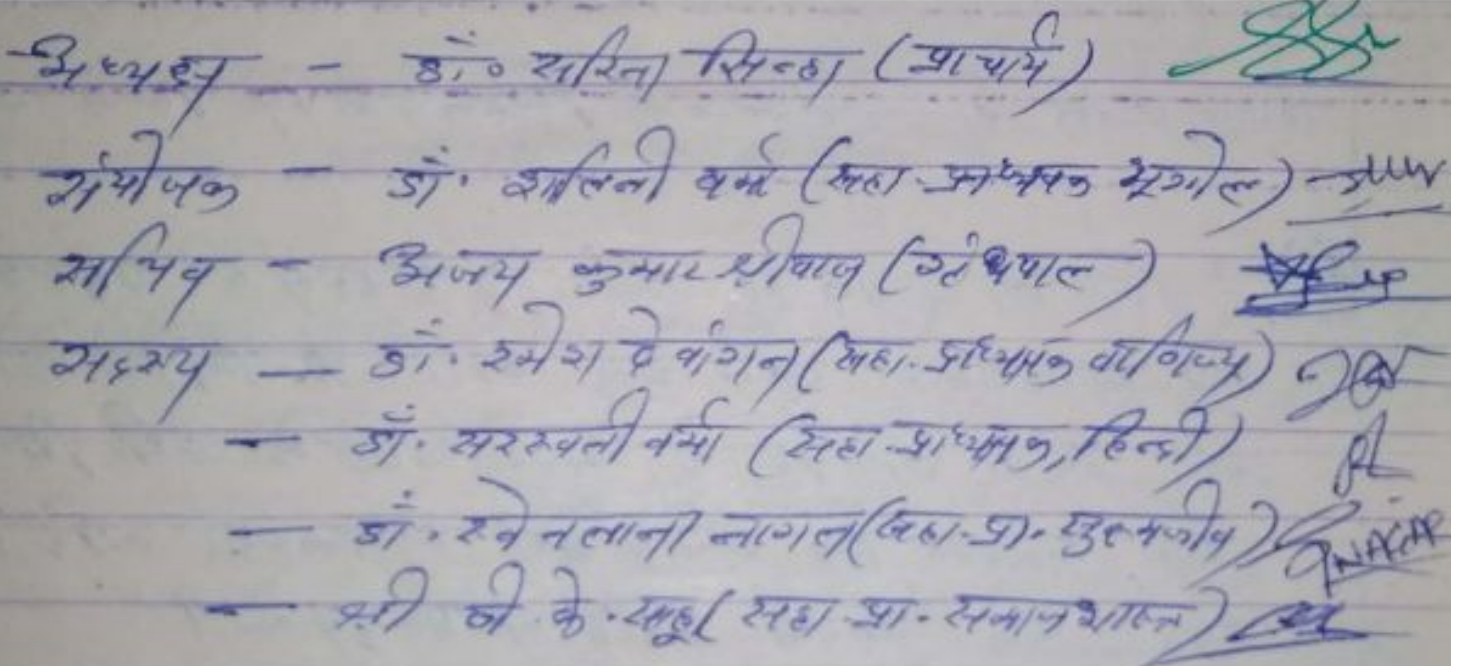 अध्यक्ष - डॉ० सरिता सिन्हा (प्राचार्य)
संयोजक - डॉ. शालिनी वर्मा (सहा. प्राध्यापक भूगोल)
सचिव - अजय कुमार श्रीवास (ग्रंथपाल)
सदस्य - डॉ. रमेश देवांगन (सहा. प्राध्यापक वाणिज्य)
- डॉ. सरस्वती वर्मा (सहा. प्राध्यापक, हिन्दी)
- डॉ. (सहा. प्रा. NAGAR
- श्री के. साहू (सहा. प्रा. समाजशास्त्र)